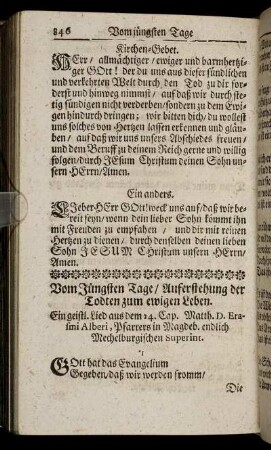 846 Vom jüngsten Tage
Kirchen-Gebet.
HErr/ allmächtiger/ ewiger und barmhertzi-
ger GOtt! der du uns aus dieser sündlichen
und verkehrten Welt durch den Tod zu dir for-
derst und hinweg nimmst/ auf daß wir durch ste-
tig sündigen nicht verderben/ sondern zu dem Ewi-
gen hindurch dringen; wir bitten dich/ du wollest
uns solches von Hertzen lassen erkennen und gläu-
ben/ auf daß wir uns unsers Abschiedes freuen/
und dem Beruff zu deinem Reich gerne und willig
folgen/ durch JEsum Christum deinen Sohn un-
sern HErrn/ Amen.
Ein anders.
LIeber HErr GOtt/ weck uns auf/ daß wir be-
reit seyn/ wenn dein lieber Sohn kömmt ihn
mit Freuden zu empfahen/ und dir mit reinen
Hertzen zu dienen/ durch denselben deinen lieben
Sohn JESUM Christum unsern HErrn/
Amen.
Vom Jüngsten Tage/ Auferstehung der
Todten zum ewigen Leben.
Ein geistl. Lied aus dem 24. Cap. Matth. D. Era-
smi Alberi, Pfarrers in Magdeb. endlich
Mechelburgischen Superint.
GOtt hat das Evangelium
Gegeben/ daß wir werden fromm/
Die